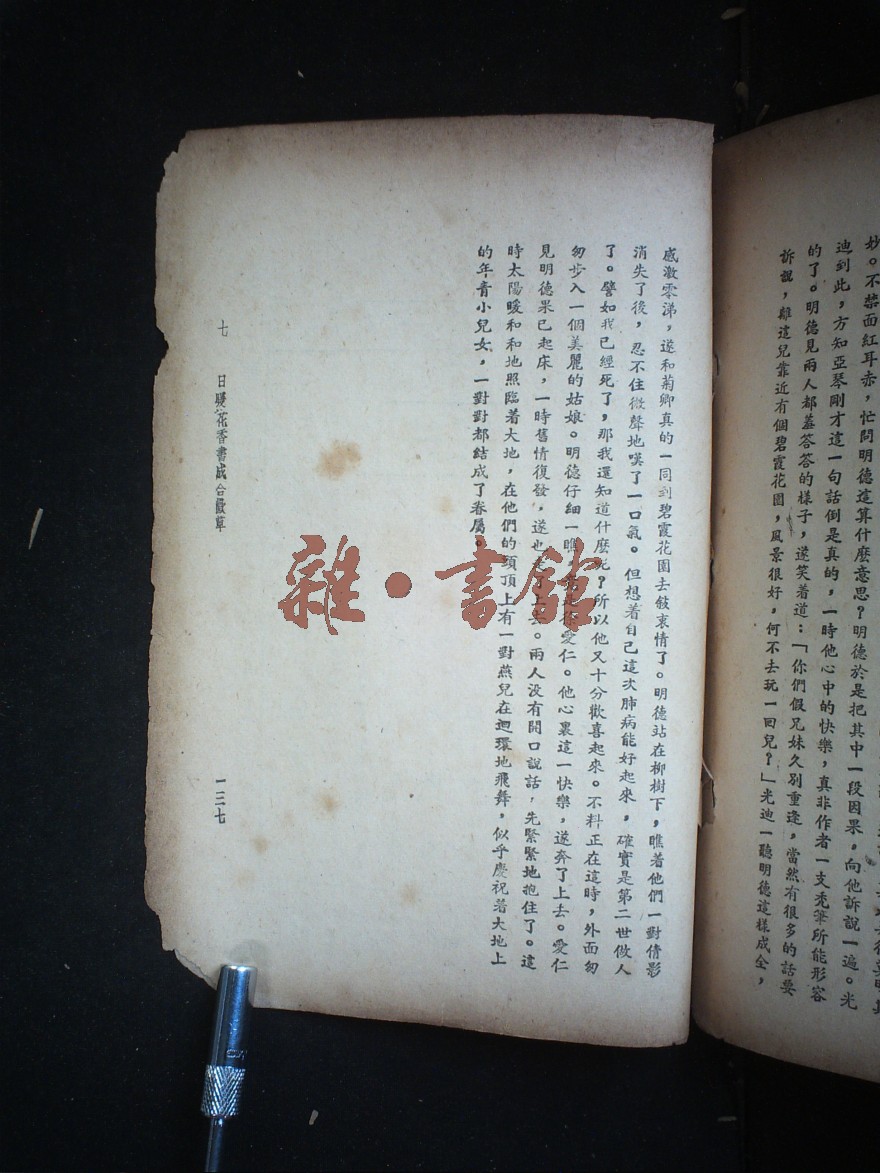 妙。不禁面紅耳赤，忙問明德這算什麼意思？明德於是把其中一段因果，向他訴說一遍。光
迪到此，方知亞琴剛才這一句話倒是真的，一時他心中的快樂，真非作者一支秃筆所能形容
的了。明德見兩人都羞答答的樣子，遂笑着道：「你們假兄妹久別重逢，當然有很多的話要
訴說，離這兒靠近有個碧霞花園，風景很好，何不去玩一回兒？」光迪一聽明德這樣成全，
感激零涕，遂和菊卿真的一同到碧霞花園去敍衷情了。明德站在柳樹下，瞧着他們一對倩影
消失了後，忍不住微聲地嘆了一口氣。但想着自己這次肺病能好起來，確實是第二世做人
了。譬如我已經死了，那我還知道什麼呢？所以他又十分歡喜起來。不料正在這時，外面匆
匆步入一個美麗的姑娘。明德仔細一瞧，愛仁。他心裏這一快樂，遂奔了上去。愛仁
見明德果已起床，一時舊情復發，遂也了上去。兩人沒有開口說話，先緊緊地抱住了。這
時太陽暖和和地照臨着大地，在他們的頭頂上有一對燕兒在迴環地飛舞，似乎慶祝着大地上
的年青小兒女，一對對都結成了眷屬。
七 日暖花香書成合歡草
一二七
雜·書館